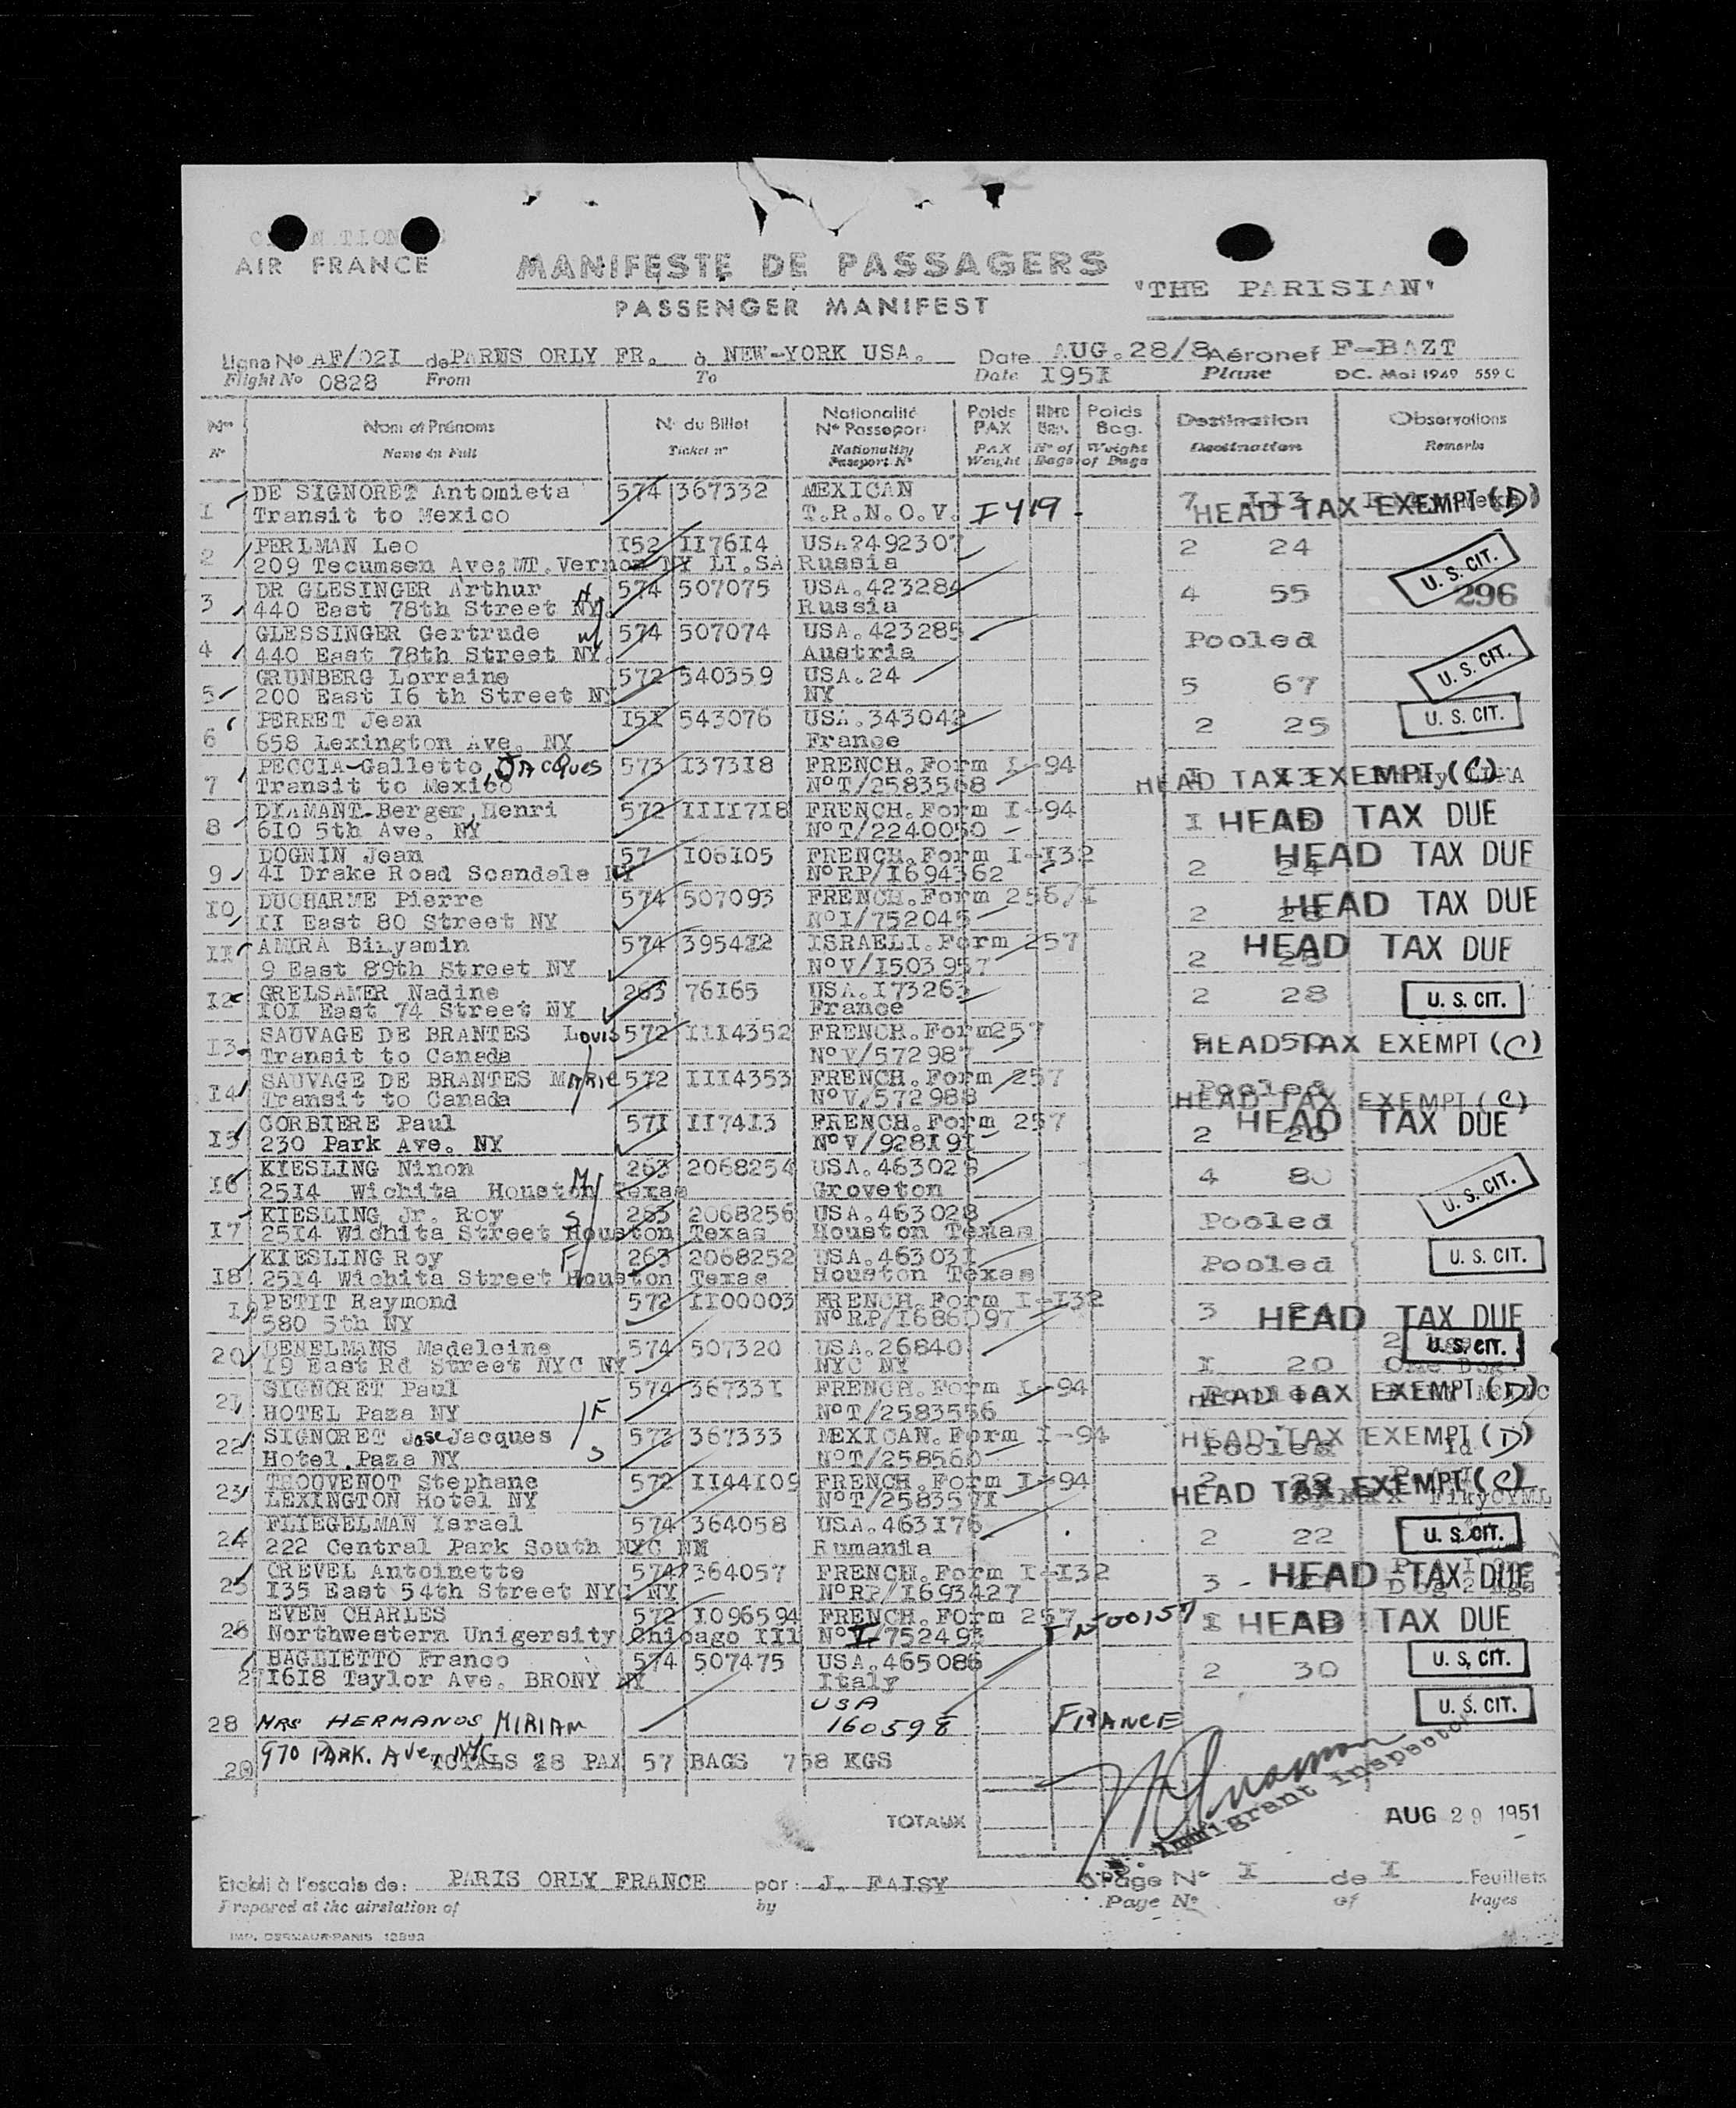 AIR FRANCE
MANIFESTE DE PASSAGERS
PASSENGER MANIFEST
"THE PARISIAN"
Ligne Nº AF/021 de PARNS ORLY FR. à NEW-YORK USA. Date AUG.28/8 Aéronef F-BAZT
Flight No 0828 From To Date I95I Plane DC. Mai 1949 559 C
Nos Nom et Prénoms N. du Billet Nationalité Nº Passeport Poids PAX Nbre Bag. Poids Bag. Destination Observations
Nº Name in Full Ticket nº Nationality Passport Nº PAX Weight Nº of Bags Weight of Bags Destination Remarks
I DE SIGNORET Antomieta 574 367332 MEXICAN 7 II3
Transit to Mexico T.R.N.O.V. I 419. HEAD TAX EXEMPT (D)
2 PERLMAN Leo I52 II76I4 USA?492307 2 24 U. S. CIT.
209 Tecumsen Ave; MT. Vernon NY LI.SA Russia
3 DR GLESINGER Arthur H 574 507075 USA.423284 4 55 296
440 East 78th Street NY. Russia
4 GLESSINGER Gertrude w 574 507074 USA.423285 Pooled
440 East 78th Street NY. Austria U. S. CIT.
5 GRUNBERG Lorraine 572 540359 USA.24 5 67
200 East I6 th Street NY NY
6 PERRET Jean I5I 543076 USA.343042 2 25 U. S. CIT.
658 Lexington Ave. NY France
7 PECCIA-Galletto, JACQUES 573 I373I8 FRENCH.Form I-94
Transit to Mexico NºT/2583568 HEAD TAX EXEMPT (C)
8 DIAMANT-Berger Henri 572 IIII7I8 FRENCH.Form I-94 I HEAD TAX DUE
6I0 5th Ave. NY NºT/2240050
9 DOGNIN Jean 57 I06I05 FRENCH.Form I-I32 2 24 HEAD TAX DUE
4I Drake Road Scandale NY NºRP/I694362
I0 DUCHARME Pierre 574 507093 FRENCH.Form 256/I 2 HEAD TAX DUE
II East 80 Street NY NºI/752045
II AMIRA Binyamin 574 3954I2 ISRAELI.Form 257 2 HEAD TAX DUE
9 East 89th Street NY NºV/I503957
I2 GRELSAMER Nadine 263 76I65 USA.I73263 2 28 U. S. CIT.
I0I East 74 Street NY France
I3 SAUVAGE DE BRANTES Louis 572 III4352 FRENCH.Form257 HEAD TAX EXEMPT (C)
Transit to Canada NºV/572987
I4 SAUVAGE DE BRANTES MARIE 572 III4353 FRENCH.Form 257 Pooled
Transit to Canada NºV/572988 HEAD TAX EXEMPT (C)
I5 CORBIERE Paul 57I II74I3 FRENCH.Form 257 2 HEAD TAX DUE
230 Park Ave. NY NºV/928I9I
I6 KIESLING Ninon M 263 2068254 USA.463026 4 80 U. S. CIT.
25I4 Wichita Houston Texas Groveton
I7 KIESLING Jr. Roy S 263 2068256 USA.463028 Pooled
25I4 Wichita Street Houston Texas Houston Texas
I8 KIESLING Roy F 263 2068252 USA.46303I Pooled U. S. CIT.
25I4 Wichita Street Houston Texas Houston Texas
I9 PETIT Raymond 572 II00003 FRENCH.Form I-I32 3 HEAD TAX DUE
580 5th NY NºRP/I686097
20 BEMELMANS Madeleine 574 507320 USA.26840 U. S. CIT.
I9 East Rd Street NYC NY NYC NY I 20 One Dog
2I SIGNORET Paul 574 36733I FRENCH.Form I-94 HEAD TAX EXEMPT (D)
HOTEL Paza NY F NºT/2583556
22 SIGNORET Jose Jacques 573 367333 MEXICAN.Form I-94 HEAD TAX EXEMPT (D)
Hotel.Paza NY S NºT/258560 Pooled Id
23 THOUVENOT Stephane 572 II44I09 FRENCH.Form I-94 2
LEXINGTON Hotel NY NºT/258357I HEAD TAX EXEMPT (C)
24 FLIEGELMAN Israel 574 364058 USA.463I76 2 22 U. S. CIT.
222 Central Park South NYC NM Rumania
25 CREVEL Antoinette 574 364057 FRENCH.Form I-I32 3 - HEAD TAX DUE
I35 East 54th Street NYC NY NºRP/I693427
26 EVEN CHARLES 572 I096594 FRENCH.FOrm 257 I HEAD TAX DUE
Northwestern Unigersity Chicago III NºI/752493
27 BAGLIETTO Franco 574 507475 USA.465086 2 30 U. S. CIT.
I6I8 Taylor Ave. BRONY NY Italy
28 MRS HERMANOS, MIRIAM USA 160598 FRANCE U. S. CIT.
970 PARK. AVE, NYC
TOTALS 28 PAX 57 BAGS 758 KGS
TOTAUX
Immigrant Inspector
AUG 29 1951
Etabli à l'escale de: PARIS ORLY FRANCE par: J. FAISY Page Nº I de I Feuillets
Prepared at the airstation of by Page Nº of Pages